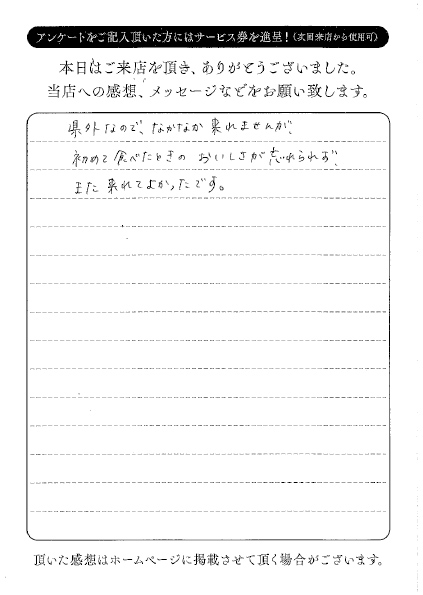 アンケートをご記入頂いた方にはサービス券を進呈！(次回来店から使用可)
本日はご来店を頂き、ありがとうございました。
当店への感想、メッセージなどをお願い致します。
県外なので、なかなか来れませんが、
初めて食べたときの おいしさが忘れられず、
また来れてよかったです。
頂いた感想はホームページに掲載させて頂く場合がございます。